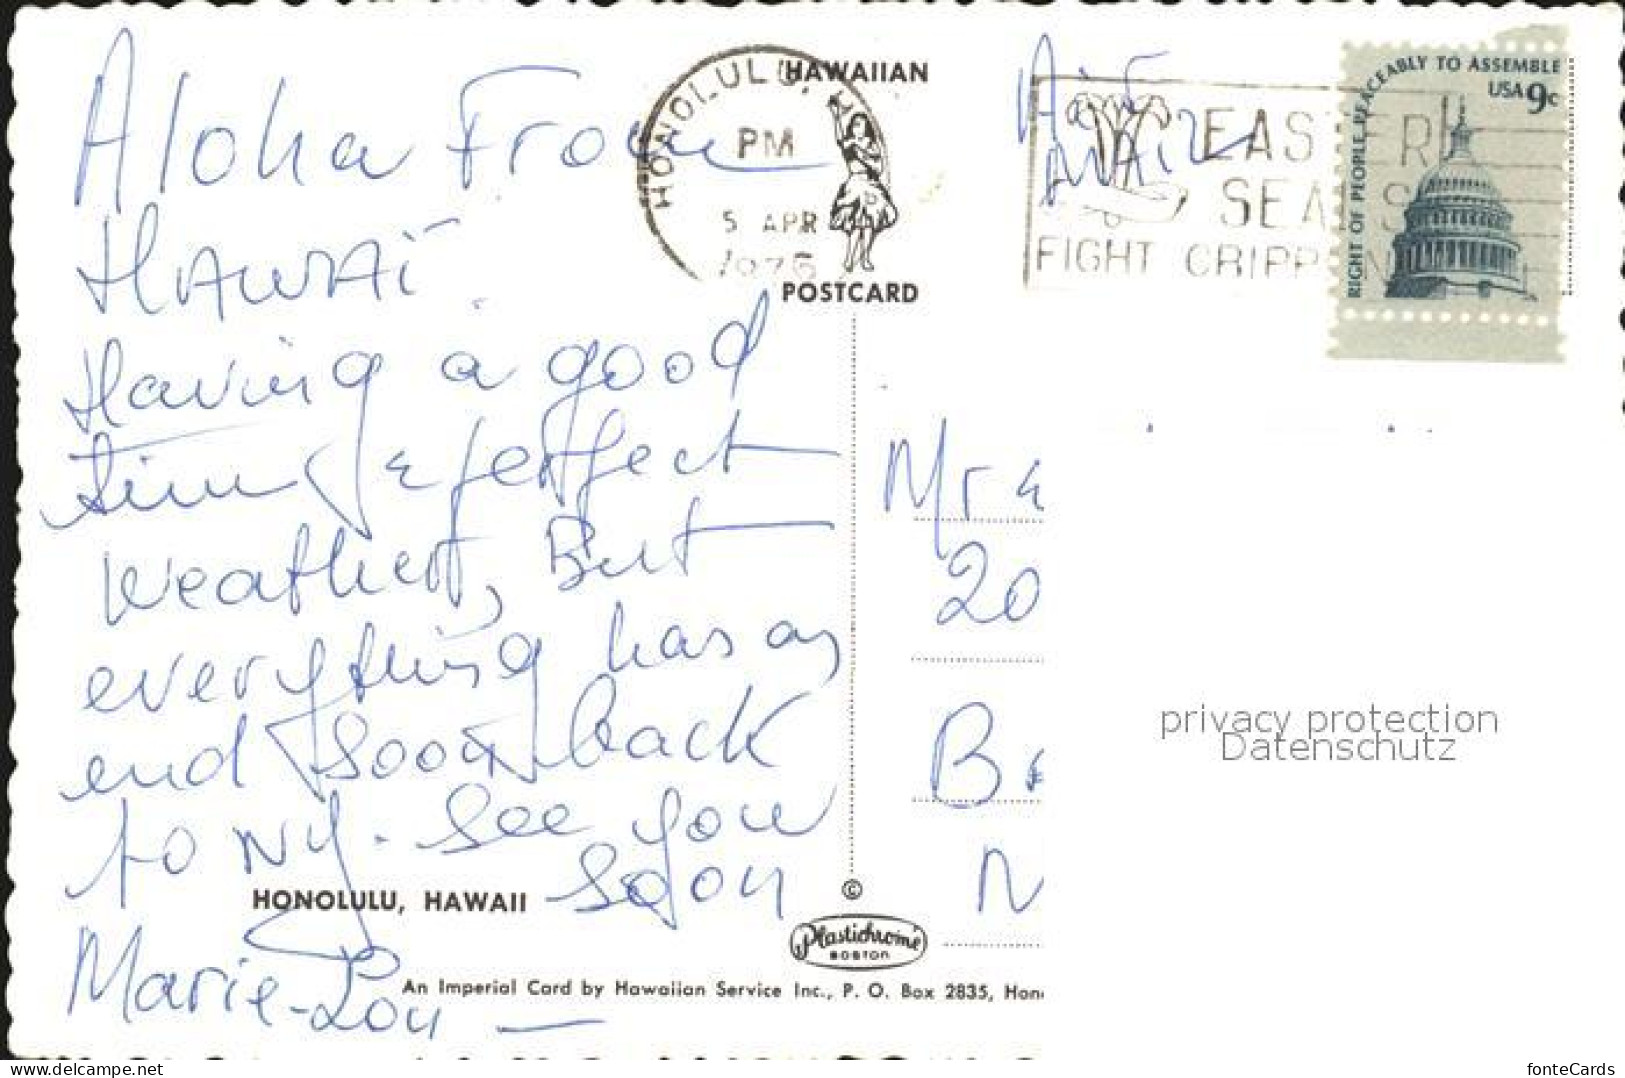 Aloha From
HAWAI
Having a good
time & perfect
weather, But
everything has an
end soon back
to NY. See you
soon
Marie-Lou
HONOLULU, HAWAII
An Imperial Card by Hawaiian Service Inc., P. O. Box 2835, Hon
HAWAIIAN
POSTCARD
HONOLULU, H
PM
5 APR
1976
Air
EASTER
SEALS
FIGHT CRIPP
RIGHT OF PEOPLE PEACEABLY TO ASSEMBLE
USA 9c
Mr &
20
B
N
©
Plastichrome
BOSTON
privacy protection
Datenschutz
delcampe.net
fonteCards